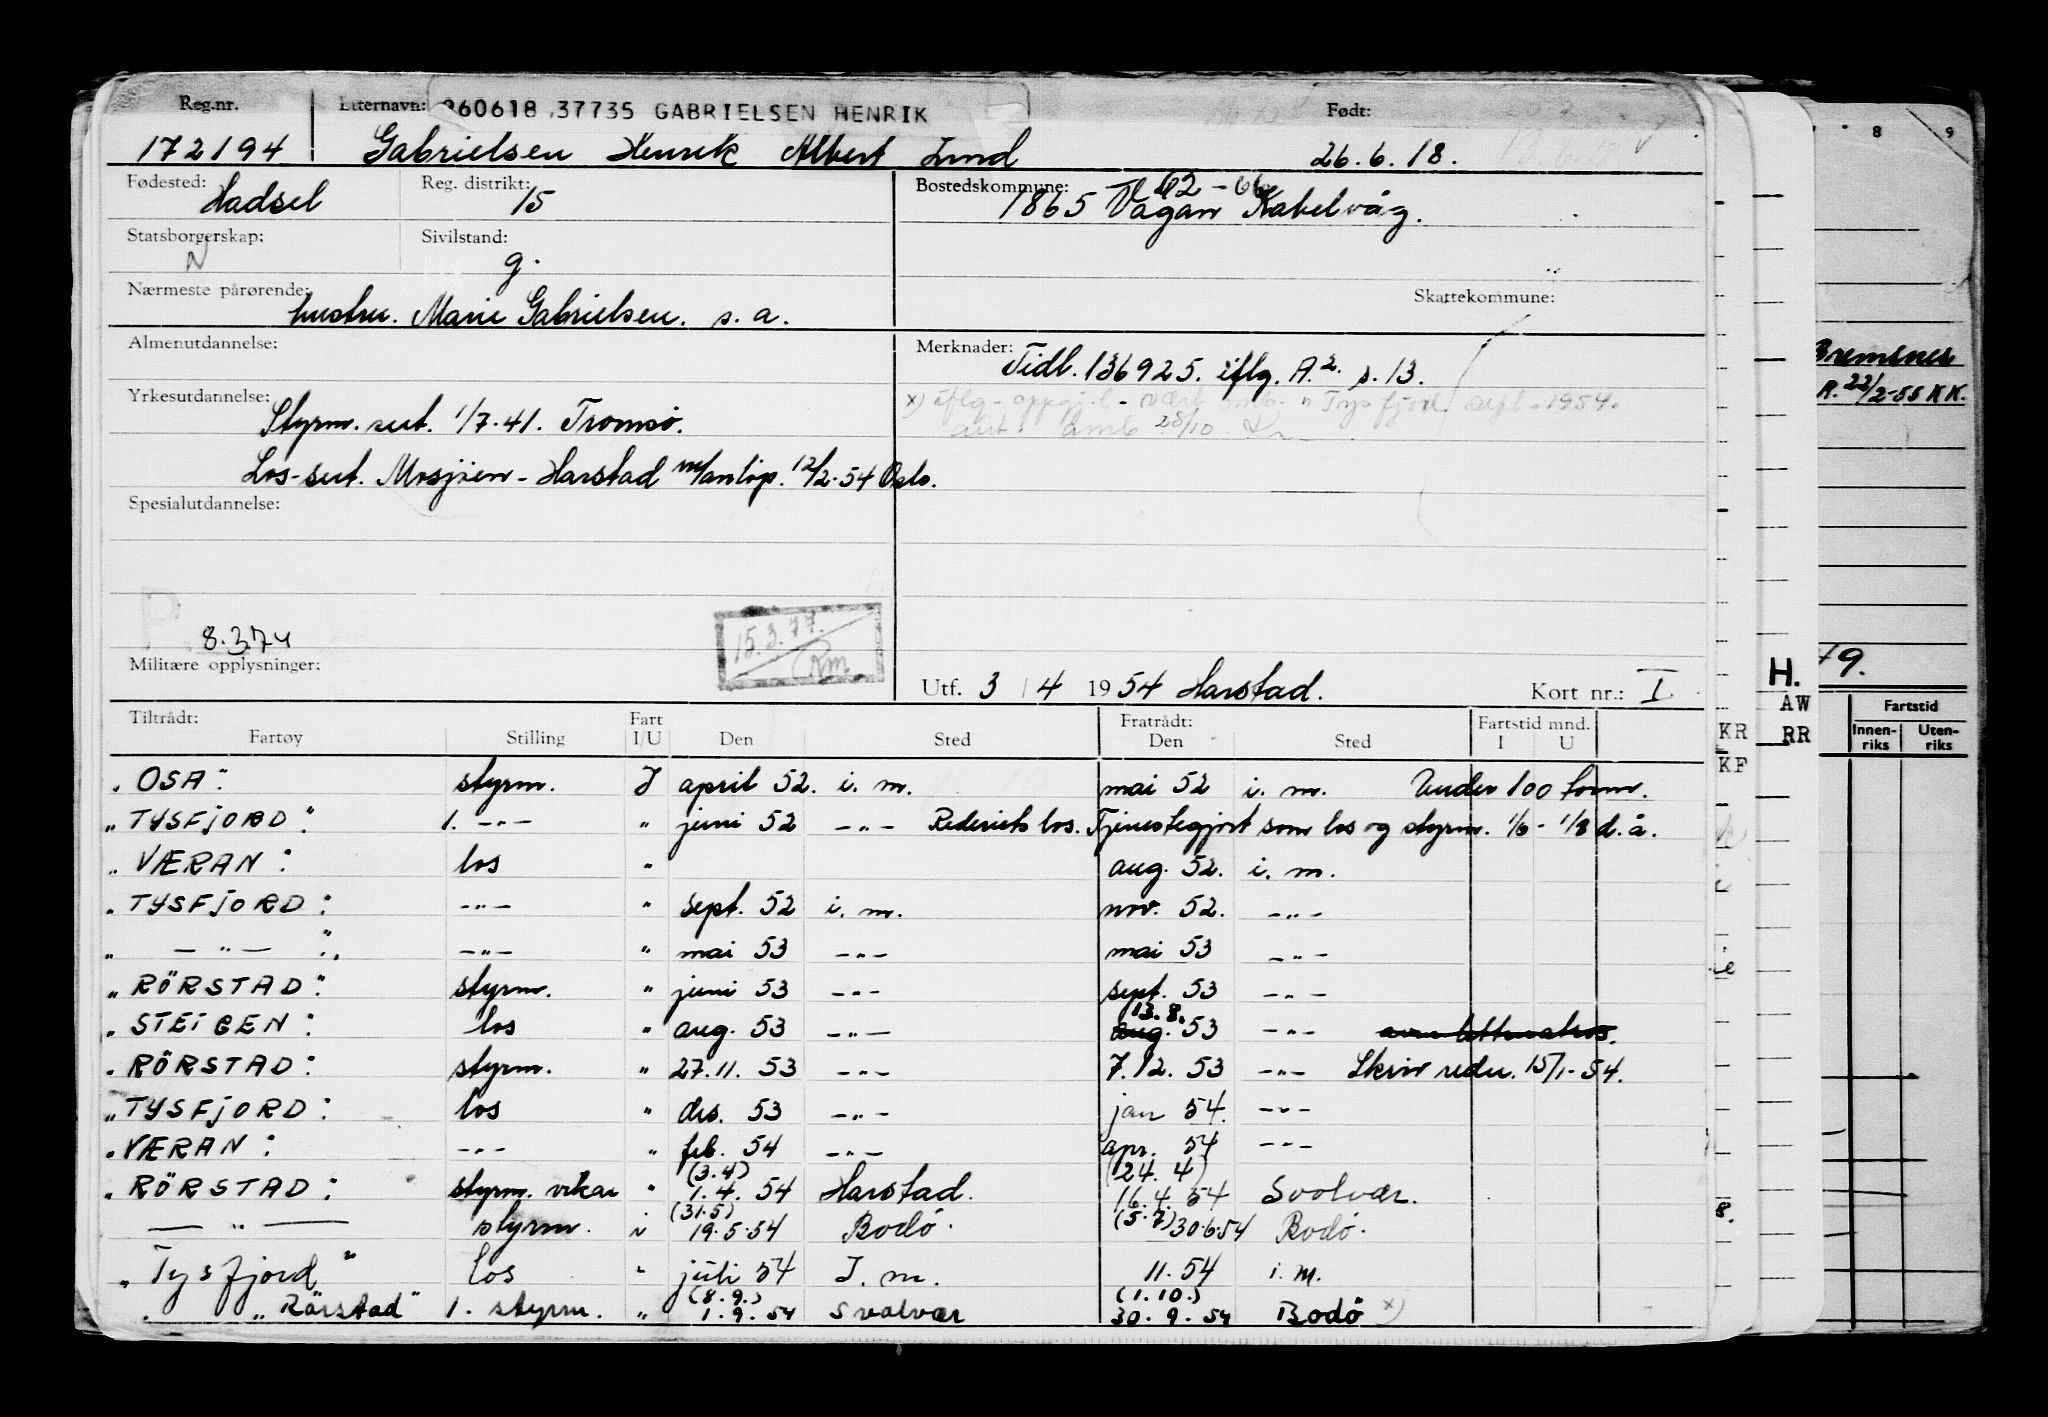 Reg.nr. Etternavn: 260618 37735 GABRIELSEN HENRIK Født:
172194 Gabrielsen Henrik Albert Lind 26.6.18.
Fødested: Hadsel Reg. distrikt: 15 Bostedskommune: 62-66
1865 Vågan Kabelvåg.
Statsborgerskap: N Sivilstand: g.
Nærmeste pårørende: hustru. Marie Gabrielsen. s. a. Skattekommune:
Almenutdannelse: Merknader: Tidl. 136925. iflg. A.2. s. 13.
Yrkesutdannelse: x) iflg. oppgj.l. vært omb. " Tysfjord. sept. 1954.
Styrm. sert. 1/7.41. Tromsø. aut. omb 28/10
Los-sert. Mosjøen - Harstad m/anløp. 12/2.54 Oslo.
Spesialutdannelse:
8.3.74
15.3.77. Rm
Militære opplysninger: Utf. 3 / 4 1954 Harstad. Kort nr.: I
Tiltrådt: Fart Fratrådt: Fartstid mnd.
Fartøy Stilling I/U Den Sted Den Sted I U
"OSA" styrm. I april 52. i. m. mai 52 i. m. Under 100 tonn.
"TYSFJORD" 1. -"- " juni 52 -"- Rederiets los. Tjenestegjort som los og styrm. 1/6 - 1/8 d. å.
"VÆRAN" los " aug. 52. i. m.
"TYSFJORD" -"- " sept. 52 i. m. nov. 52. -"-
" -"- " -"- " mai 53 -"- mai 53 -"-
"RÖRSTAD" styrm. " juni 53 -"- sept. 53 -"-
"STEIGEN" los " aug. 53 -"- 13.8. aug. 53 -"-
"RÖRSTAD" styrm. " 27.11. 53 -"- 7.12. 53 -"- Skriv rederi. 15/1-54.
"TYSFJORD" los " des. 53 -"- jan 54. -"-
"VÆRAN" -"- " feb. 54 -"- apr. 54 -"-
"RÖRSTAD" styrm. vikar " (3.4) 1.4. 54 Harstad. (24.4) 16.4. 54 Svolvær.
-"- styrm. i (31.5) 19.5.54 Bodø. (5.7) 30.6.54 Bodø.
"Tysfjord" los " juli 54 I. m. 11.54 i. m.
"Rörstad" 1. styrm. " (8.9.) 1.9.54 Svolvær (1.10.) 30.9.54 Bodø x)
8 9
Bremsnes
R. 22/2-55 KK.
49.
H.
AW
RR
KR
KF
Fartstid
Innen-riks Uten-riks
8.